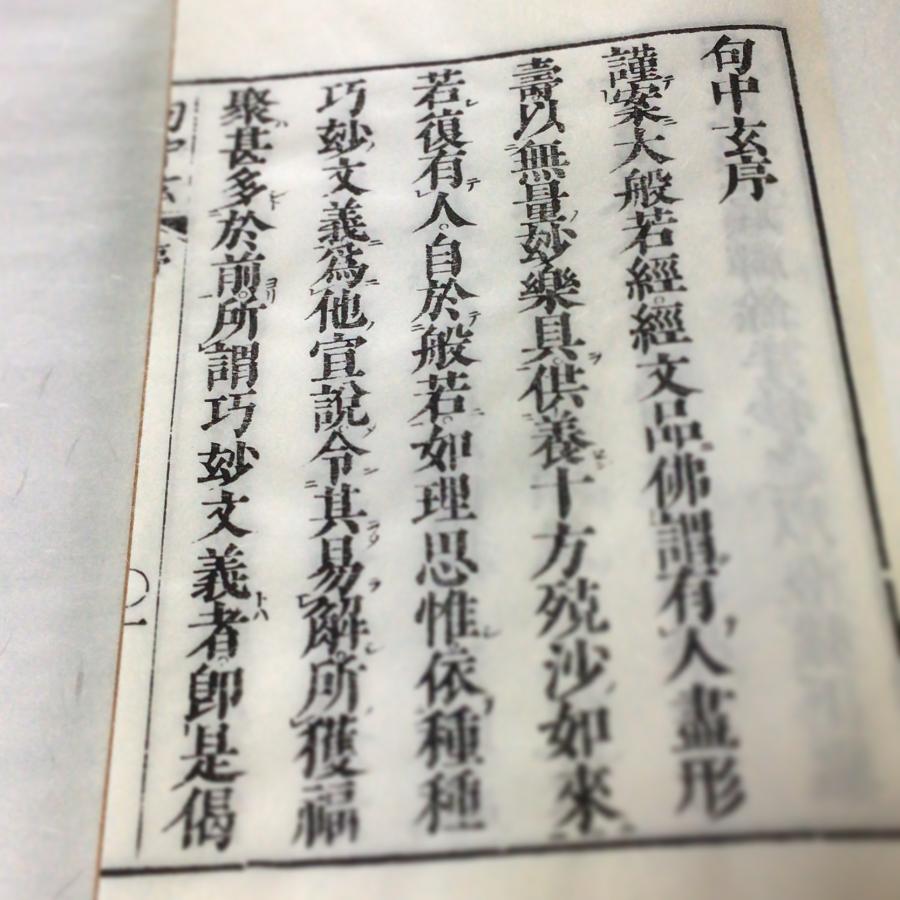 句中玄序
謹案大般若經經文品佛謂有人盡形
壽以無量妙樂具供養十方殑沙如來
若復有人自於般若如理思惟依種種
巧妙文義爲他宣說令其易解所獲福
聚甚多於前所謂巧妙文義者即是偈